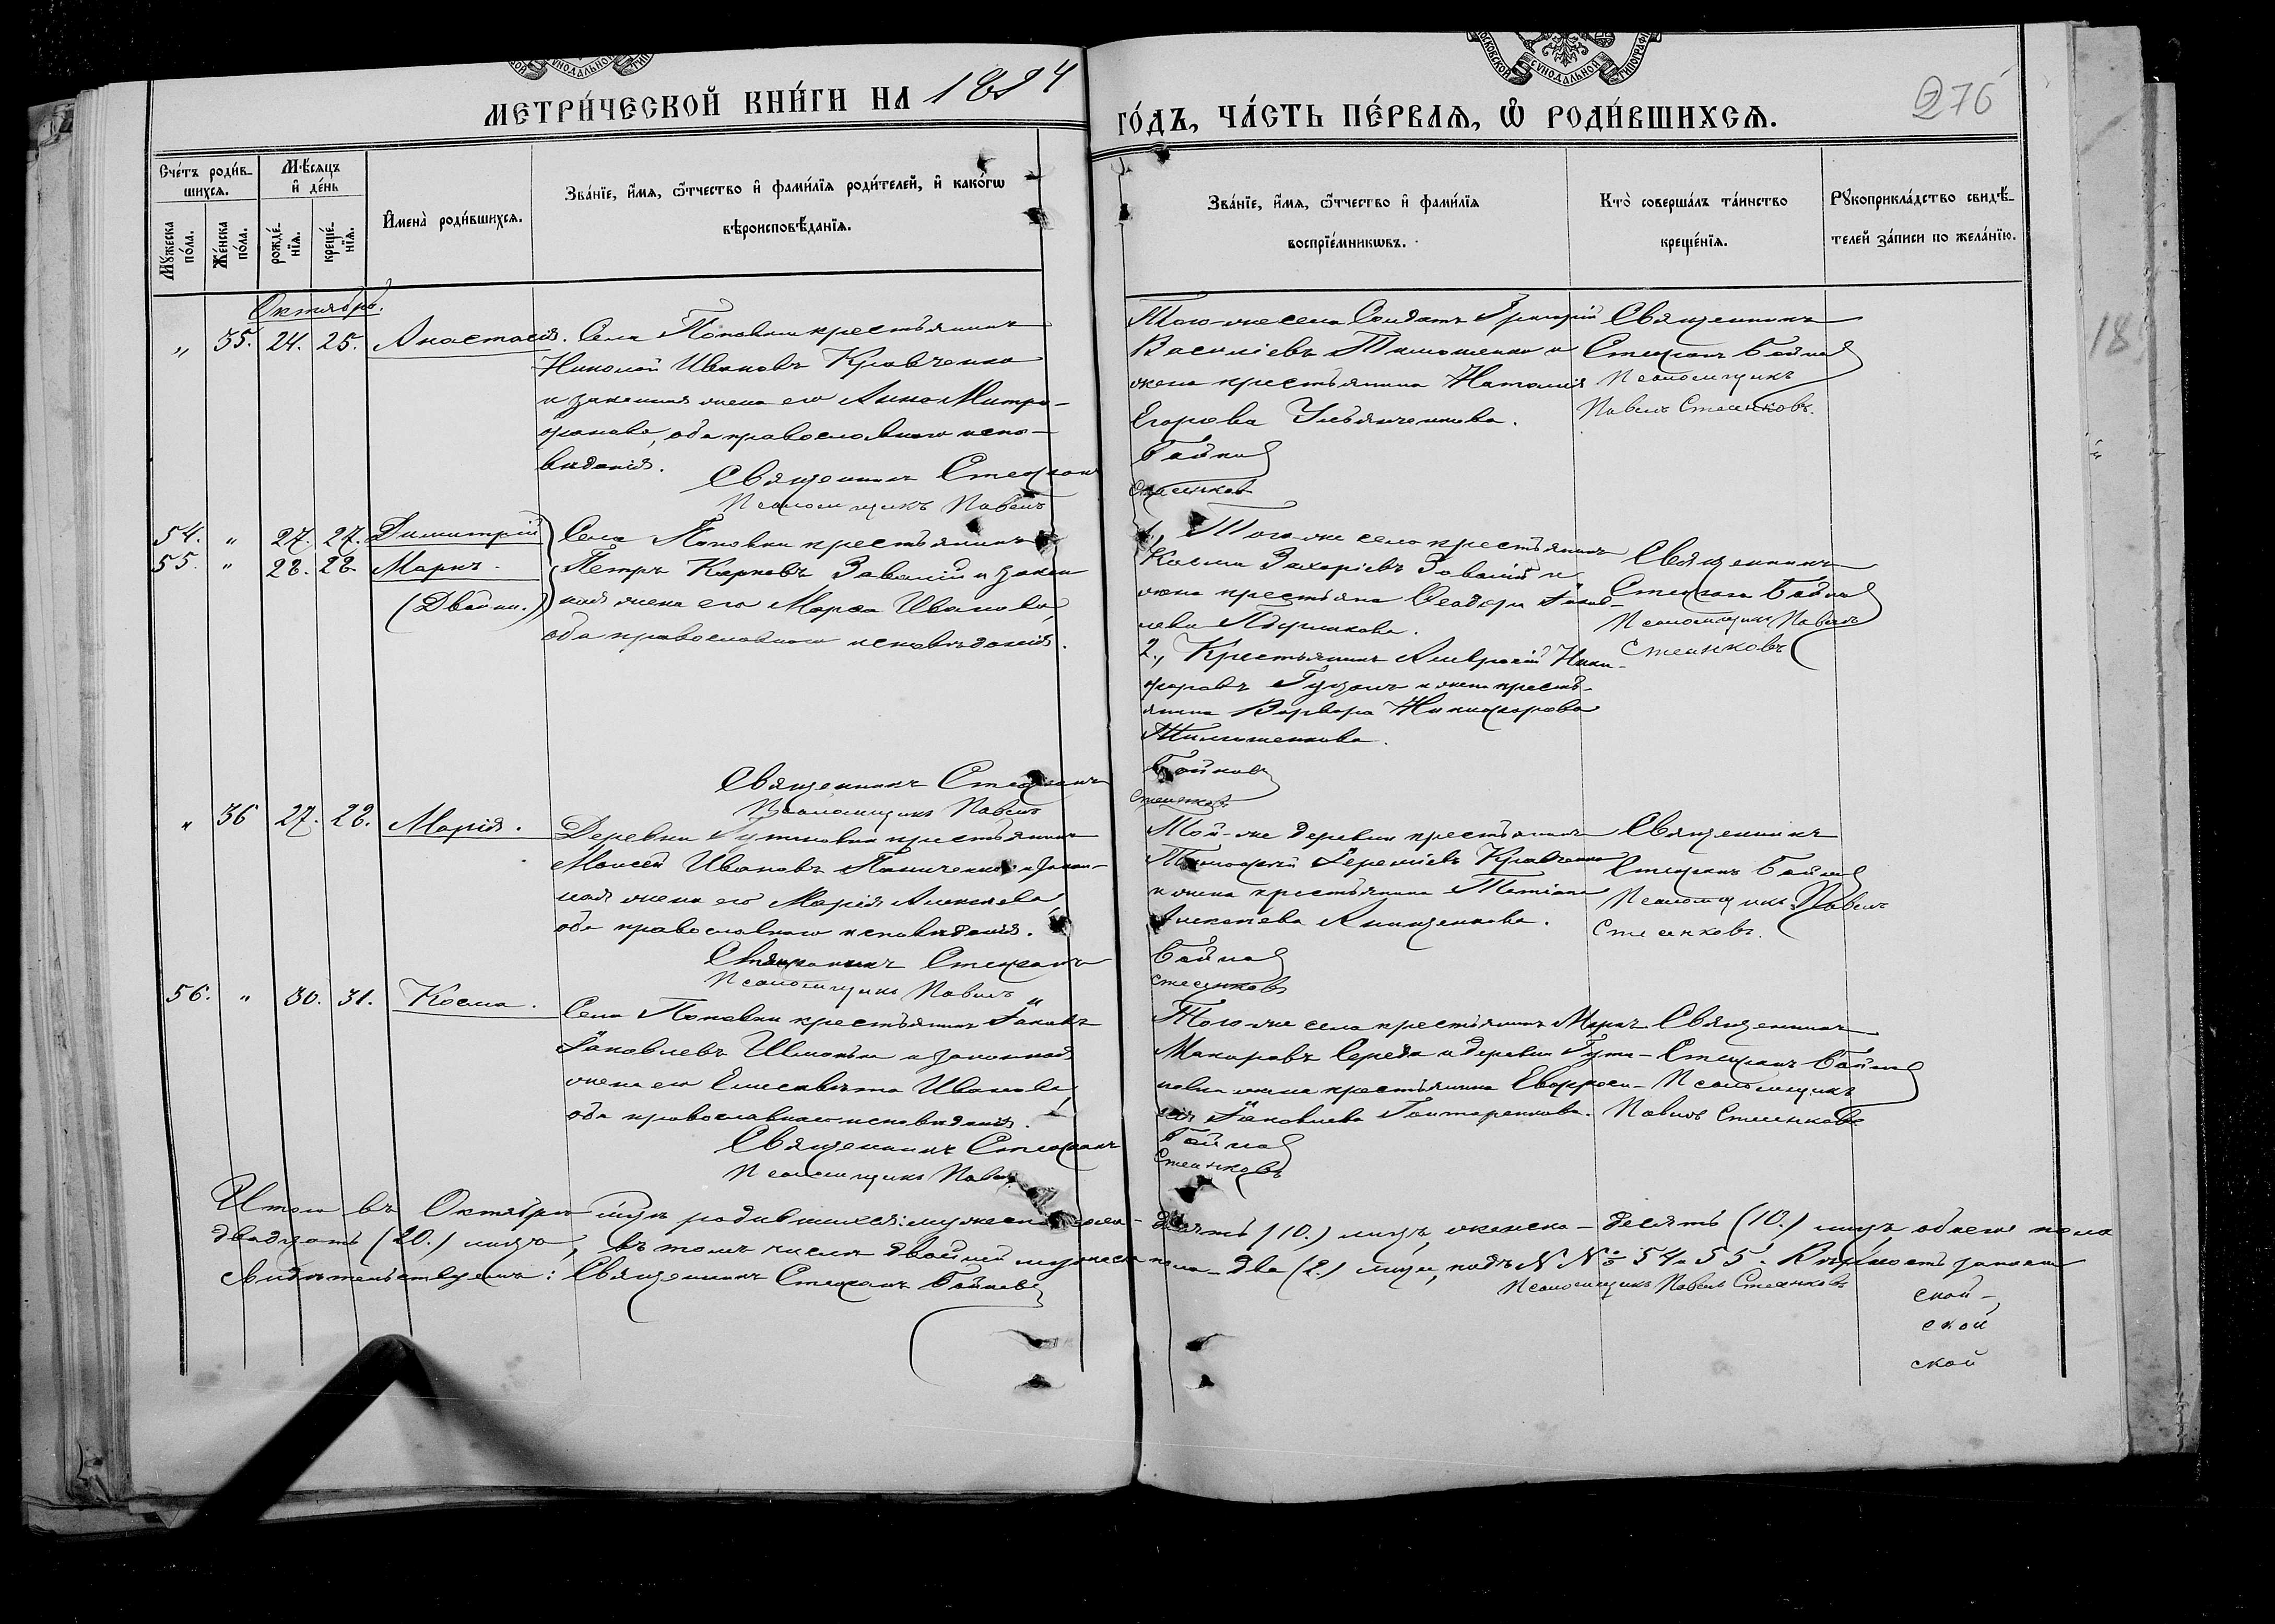 МЕТРИ́ЧЕСКОЙ КНИ́ГИ НА 1894
ГО́ДЪ, ЧА́СТЬ ПЕ́РВАЯ, Ѡ҆ РОДИ́ВШИХСЯ.
276
Сче́тъ роди́в-
шихся.
Мѣ́сяцъ
и҆ де́нь
Мꙋ́жеска
по́ла.
Же́нска
по́ла.
рожде́-
нїя.
креще́-
нїя.
И҆мена̀ роди́вшихся.
Зва́нїе, и҆́мя, ѻ҆́тчество и҆ фами́лїя роди́телей, и҆ како́гѡ
вѣроисповѣ́данїя.
Зва́нїе, и҆́мя, ѻ҆́тчество и҆ фами́лїя
воспрїе́мникѡвъ.
Кто̀ соверша́лъ та́инство
креще́нїя.
Рꙋкоприкла́дство свидѣ́-
телей за́писи по жела́нїю.
Октябрь.
„ 35. 24. 25. Анастасія. Села Поповки крестьянинъ
Николай Ивановъ Кравченко
и законная жена его Анна Митро-
фанова, оба православнаго испо-
вѣданія.
Священникъ Стефанъ
Псаломщикъ Павелъ
Того-же села Солдатъ Григорій
Василіевъ Тимошенко и
жена крестьянина Наталія
Егорова Ульянченкова.
Бойков
Стеенков
Священникъ
Стефанъ Бойков
Псаломщикъ
Павелъ Стеенковъ.
54. „ 27. 27. Димитрій
55. „ 28. 28. Маркъ.
(Двойни.)
Села Поповки крестьянинъ
Петръ Карповъ Завалій и закон
ная жена его Марѳа Иванова,
оба православнаго исповѣданія.
Священникъ Стефанъ
Псаломщикъ Павелъ
1, Того-же села крестьянинъ
Косьма Захаріевъ Завалій и
жена крестьяна Ѳеодора Яков-
лева
2., Крестьянинъ Амвросій Ники-
форовъ и жена кресть-
янина Варвара Никифорова
Тимошенкова.
Бойков
Стеенковъ
Священникъ
Стефанъ Бойков
Псаломщикъ Павелъ
Стеенковъ
„ 36 27. 28. Марія.
Деревни Гутковки крестьянинъ
Моисей Ивановъ Паниченко и закон-
ная жена его Марія Алексѣева,
оба православнаго исповѣданія.
Священникъ Стефанъ
Псаломщикъ Павелъ
Той-же деревни крестьянинъ
Тимофей Іереміевъ Кравченко
и жена крестьянина Татіана
Алексѣева
Бойков
Стеенковъ
Священникъ
Стефанъ Бойков
Псаломщикъ Павелъ
Стеенковъ.
56. „ 30. 31. Косма.
Села Поповки крестьянинъ Іаковъ
Іаковлевъ и законная
жена его Елисавета Иванова,
оба православнаго исповѣданія.
Священникъ Стефанъ
Псаломщикъ Павелъ
Того-же села крестьянинъ Маркъ
Макаровъ Середа и деревни Гут-
ковки жена крестьянина Евфроси-
нія Іаковлева Гонтаренкова.
Бойков
Стеенковъ
Священникъ
Стефанъ Бойков
Псаломщикъ
Павелъ Стеенковъ
Итого въ Октябрѣ м-цѣ родившихся: мужеска пола - десять (10.) лицъ, женска - десять (10.) лицъ, обоего пола
двадцать (20.) лицъ, въ томъ числѣ двойней мужеска пола - два (2.) лица, подъ №№ 54 и 55. Вѣрность записи
свидѣтельствуемъ: Священникъ Стефанъ Бойковъ
Псаломщикъ Павелъ Стеенковъ
ской -
ской
ской